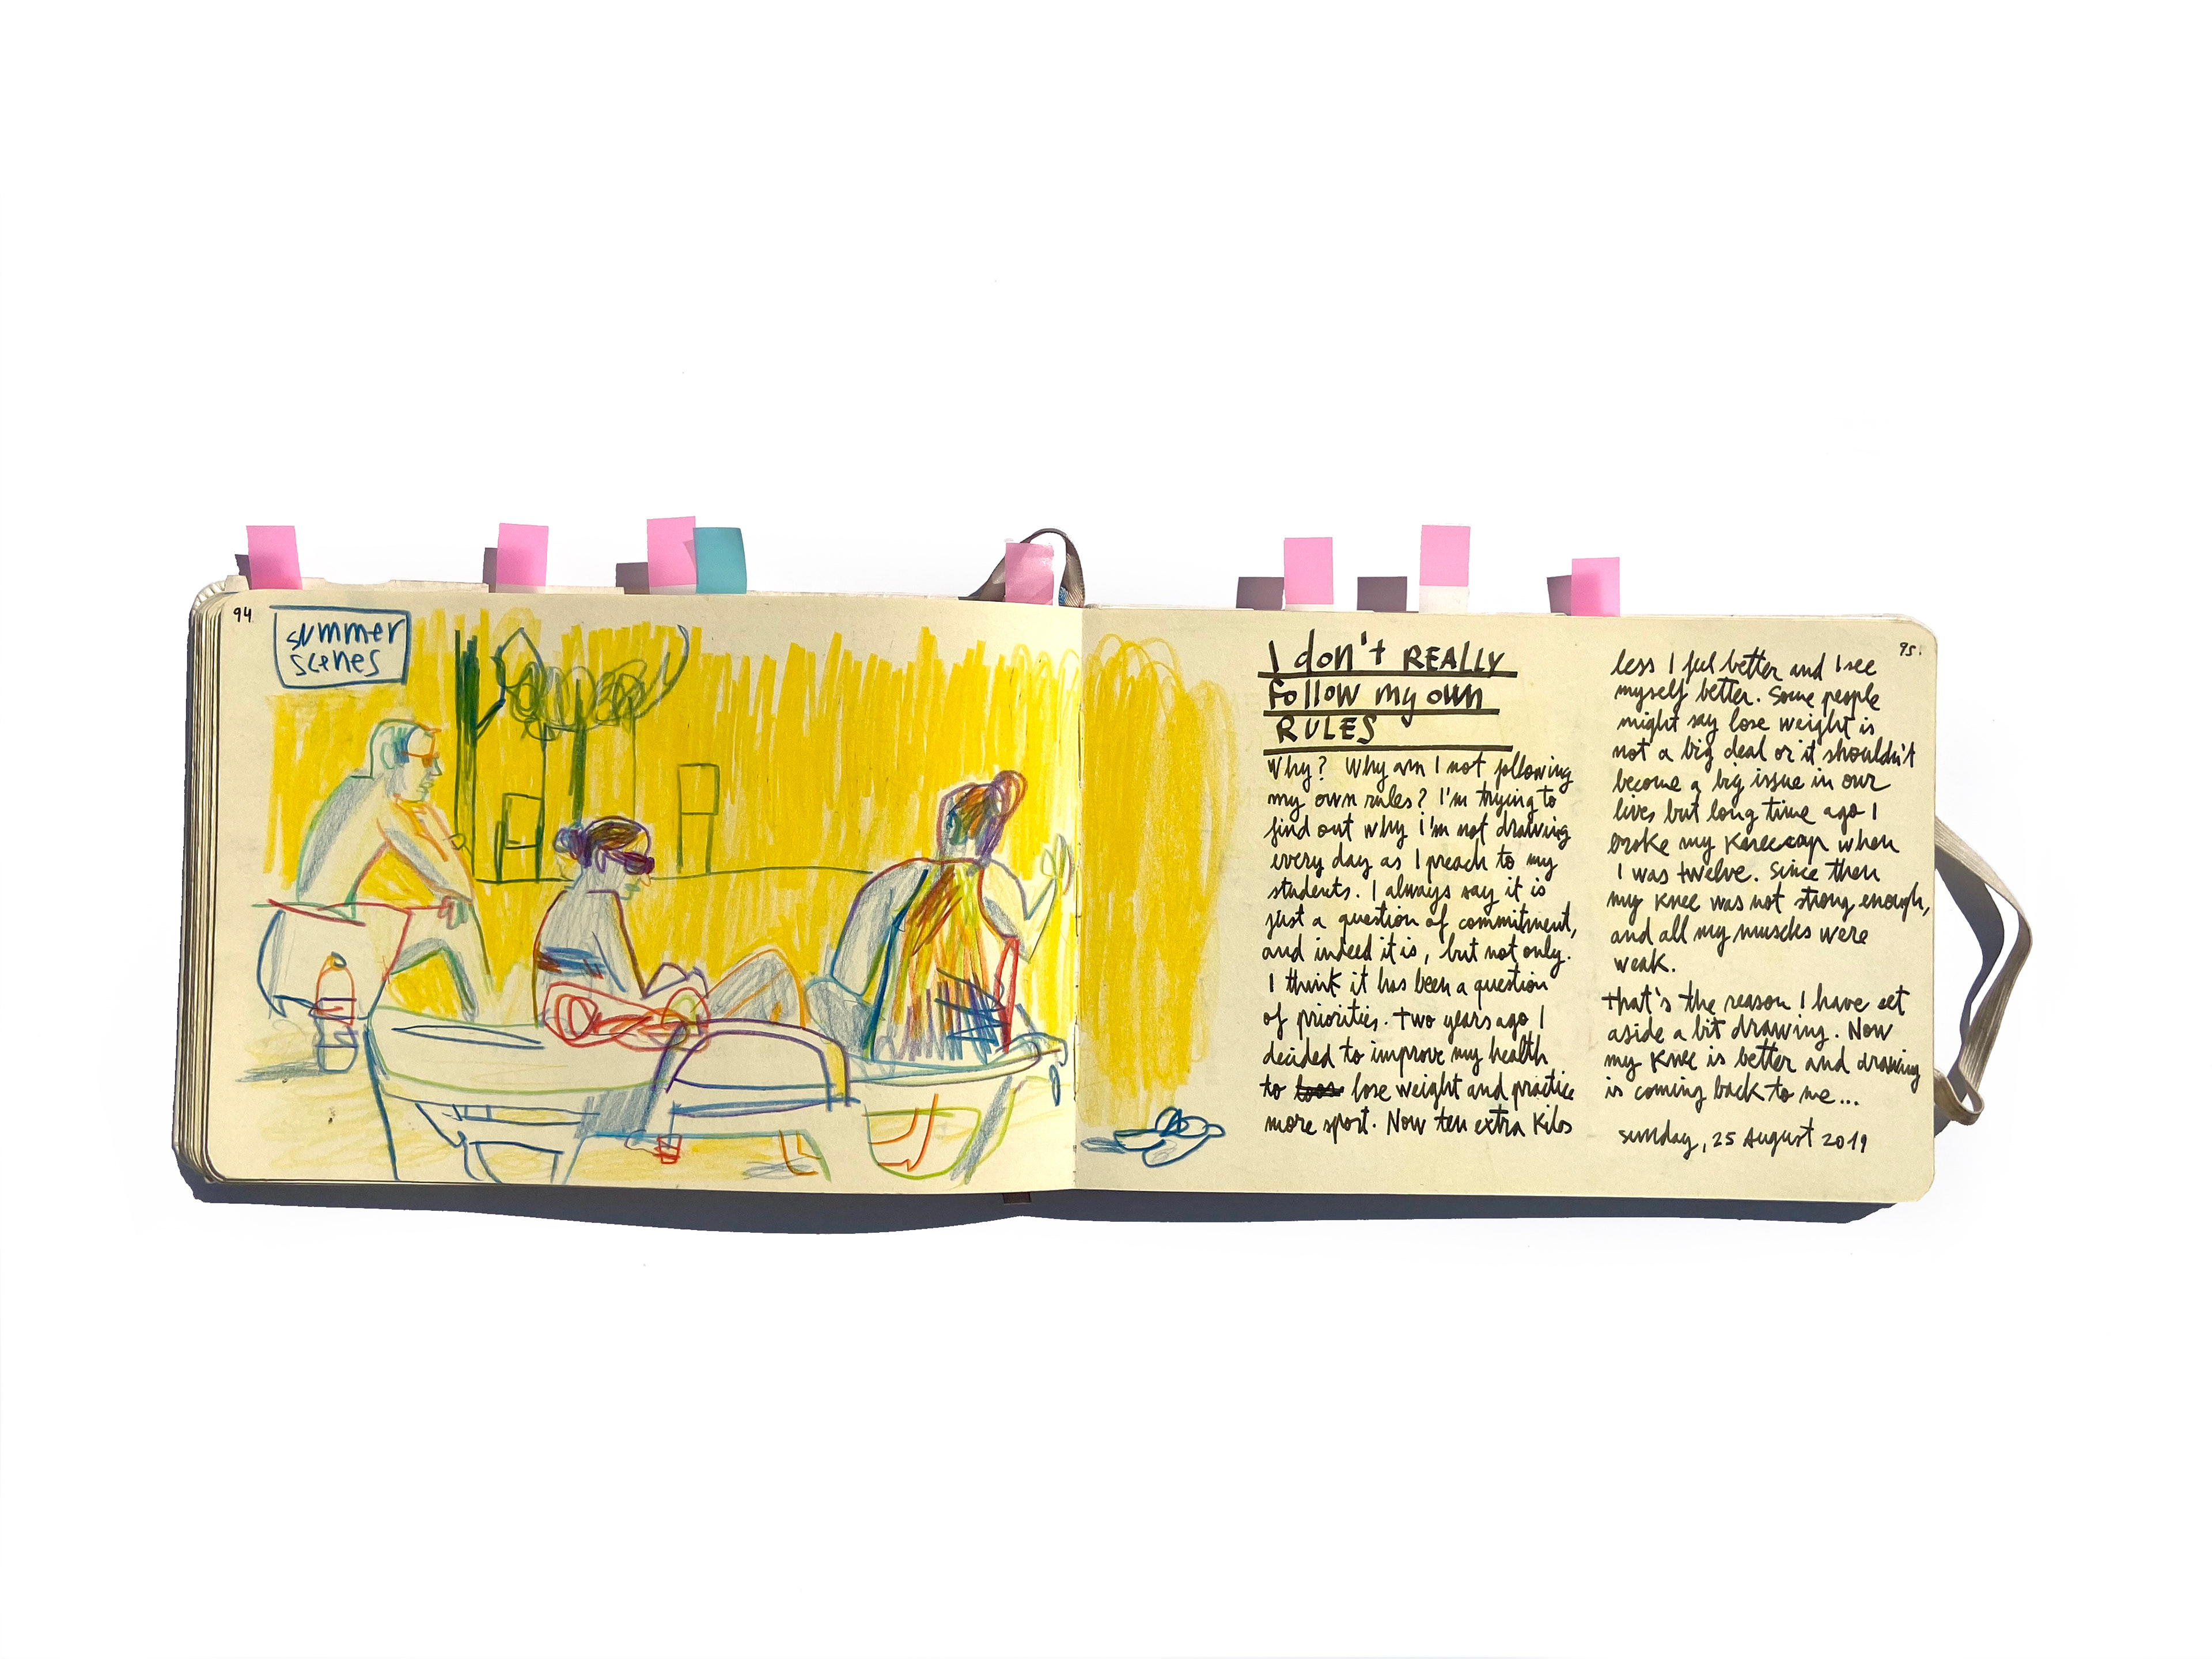 94
summer
scenes
I don't REALLY
follow my own
RULES
Why? Why am I not following
my own rules? I'm trying to
find out why i'm not drawing
every day as I preach to my
students. I always say it is
just a question of commitment,
and indeed it is, but not only.
I think it has been a question
of priorities. Two years ago I
decided to improve my health
to lose weight and practice
more sport. Now ten extra Kilos
95.
less I feel better and I see
myself better. Some people
might say lose weight is
not a big deal or it shouldn't
become a big issue in our
lives, but long time ago I
broke my Kneecap when
I was twelve. Since then
my Knee was not strong enough,
and all my muscles were
weak.
that's the reason I have set
aside a bit drawing. Now
my Knee is better and drawing
is coming back to me...
sunday, 25 August 2019